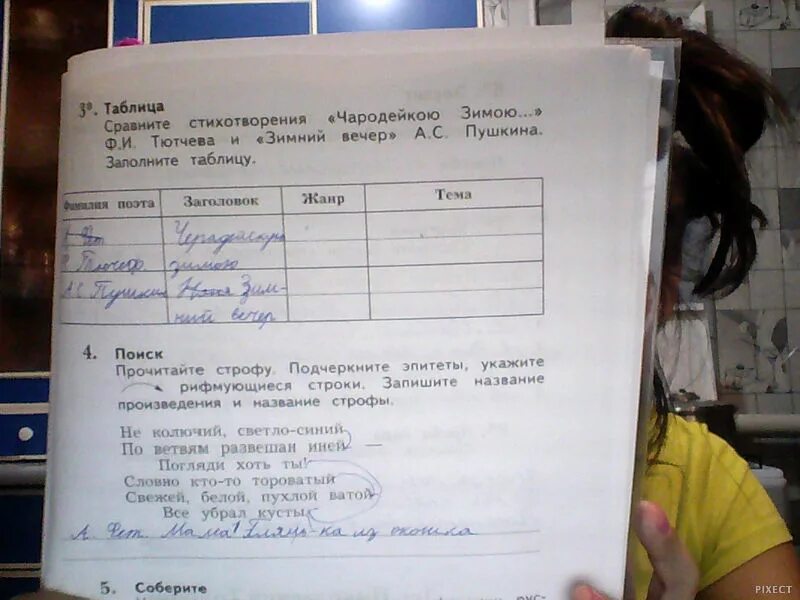 3⁰. Таблица
Сравните стихотворения «Чародейкою Зимою...»
Ф.И. Тютчева и «Зимний вечер» А.С. Пушкина.
Заполните таблицу.
Фамилия поэта Заголовок Жанр Тема
Фет Черадейскую
Тютчеф. зимою
А.С Пушкин Зим-
ний вечер
4. Поиск
Прочитайте строфу. Подчеркните эпитеты, укажите
рифмующиеся строки. Запишите название
произведения и название строфы.
Не колючий, светло-синий
По ветвям развешан иней —
Погляди хоть ты!
Словно кто-то тороватый
Свежей, белой, пухлой ватой
Все убрал кусты.
А. Фет. Мама! Глянь-ка из окошка
5. Соберите
PIXECT